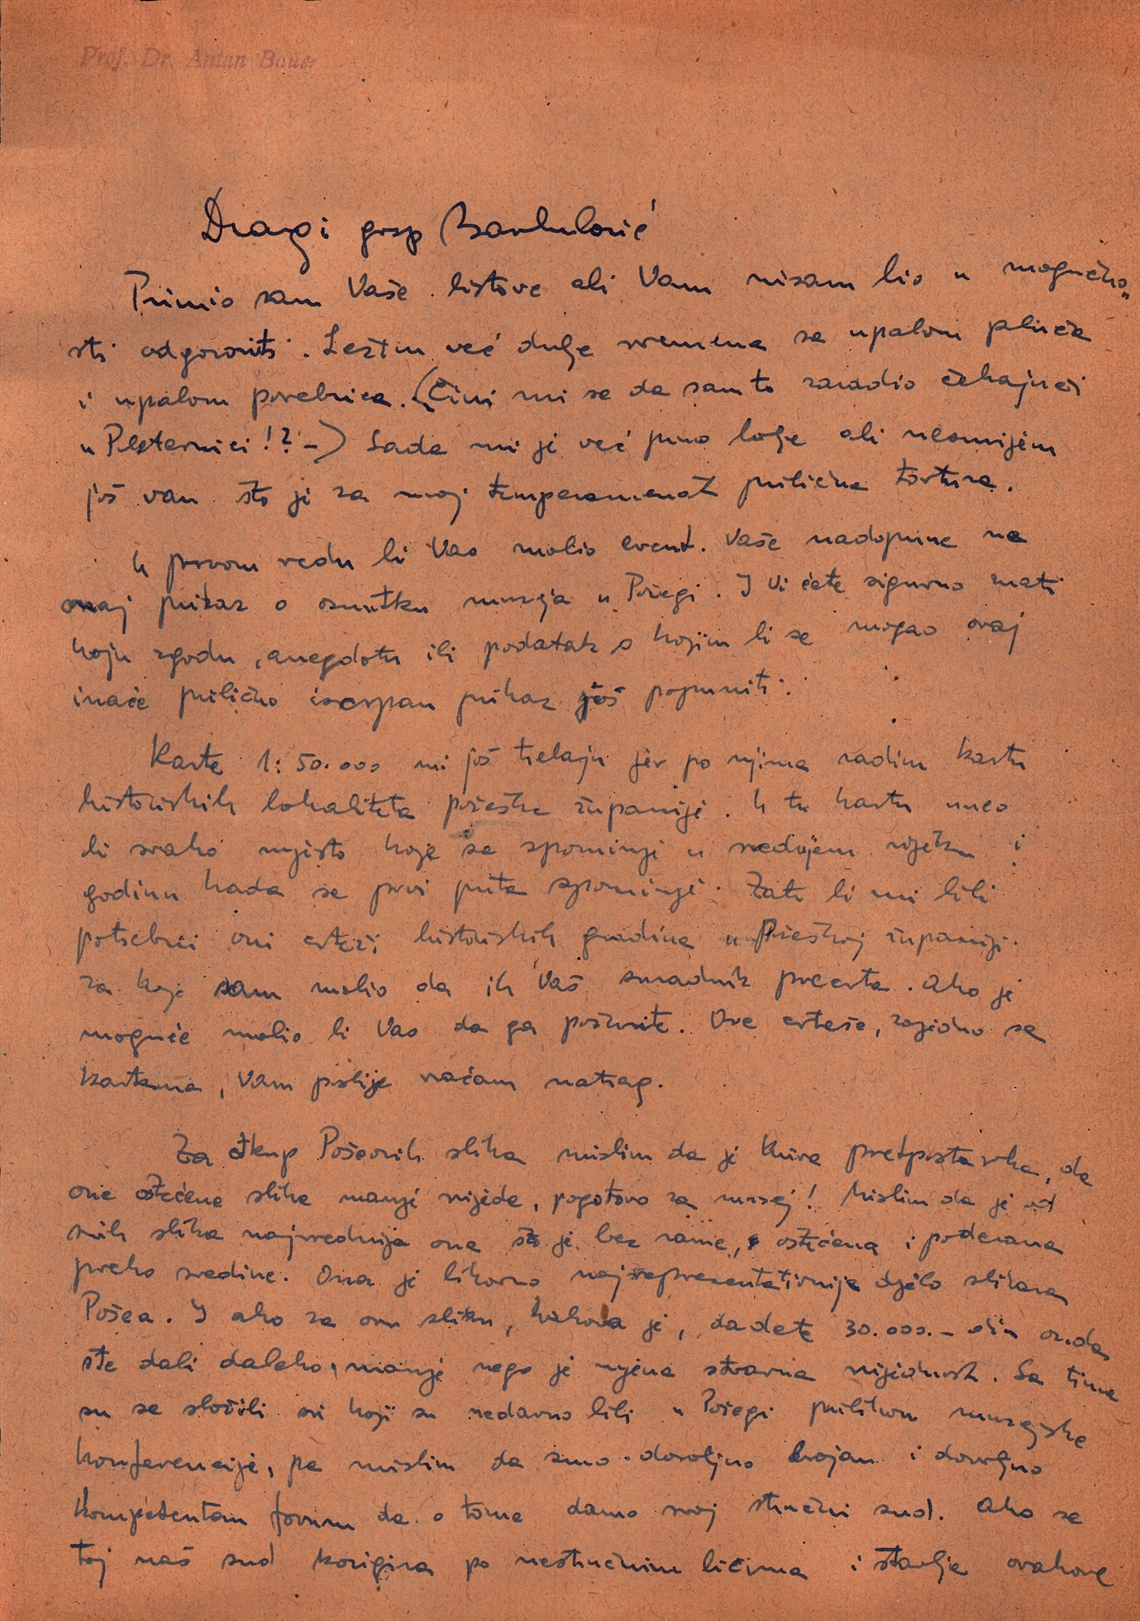 Prof. Dr. Antun Bauer
Dragi gosp Barlulović
Primio sam Vaše listove ali Vam nisam bio u mogućno„
sti odgovoriti. Ležim već dulje vremena sa upalom pluća
i upalom porebrica. (Čini mi se da sam to zaradio čekajući
u Pleternici!? –) Sada mi je već puno bolje ali nesmijem
još van što je za moj temperamenat prilična tortura.
U prvom redu bi Vas molio event. Vaše nadopune na
onaj prikaz o osnutku muzeja u Požegi. I Vi ćete sigurno znati
koju zgodu, anegdotu ili podatak s kojim bi se mogao ovaj
inače prilično iscrpan prikaz još popuniti.
Karte 1:50.000 mi još trebaju jer po njima radim kartu
historiskih lokaliteta požeške županije. U tu kartu uneo
bi svako mjesto koje se spominje u srednjem vijeku i
godinu kada se prvi puta spominje. Zato bi mi bili
potrebni oni crteži historiskih gradina u Požeškoj županiji
za koje sam molio da ih Vaš suradnik precrta. Ako je
moguće molio bi Vas da ga požurite. Ove crteže, zajedno sa
kartama, Vam poslije vraćam natrag.
Za otkup Poševih slika mislim da je kriva pretpostavka, da
one oštećene slike manje vrijede, pogotovo za muzej! Mislim da je od
svih slika najvrednija ona što je bez rame, oštećena i poderana
preko sredine. Ona je likovno najreprezentativnije djelo slikara
Pošea. I ako za ovu sliku, kakova je, dadete 30.000.– din onda
ste dali daleko manje nego je njena stvarna vrijednost. Sa time
su se složili svi koji su nedavno bili u Požegi prilikom muzejske
konferencije, pa mislim da smo dovoljno brojan i dovoljno
kompetentan forum da o tome damo svoj stručni sud. Ako se
taj naš sud korigira po nestručnim licima i stavlja ovakove